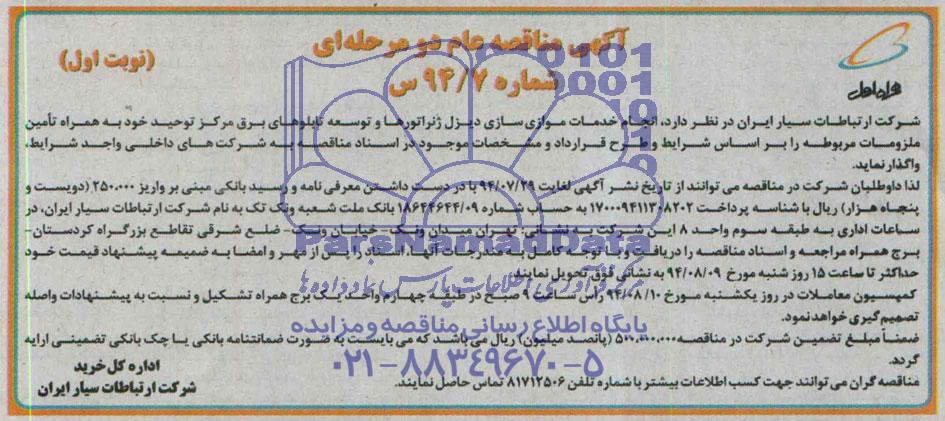 آگهی مناقصه عام دو مرحله‌ای
شماره ۹۴/۷ س
(نوبت اول)
همراه اول
شرکت ارتباطات سیار ایران در نظر دارد، انجام خدمات موازی سازی دیزل ژنراتورها و توسعه تابلوهای برق مرکز توحید خود به همراه تأمین
ملزومات مربوطه را بر اساس شرایط و طرح قرارداد و مشخصات موجود در اسناد مناقصه به شرکت های داخلی واجد شرایط،
واگذار نماید.
لذا داوطلبان شرکت در مناقصه می توانند از تاریخ نشر آگهی لغایت ۹۴/۰۷/۲۹ با در دست داشتن معرفی نامه و رسید بانکی مبنی بر واریز ۲۵۰.۰۰۰ (دویست و
پنجاه هزار) ریال با شناسه پرداخت ۴۷۰۰۰۹۴۱۱۳۰۸۲۰۲ به حساب شماره ۱۸۶۴۴۶۴۴/۰۹ بانک ملت شعبه ونک تک به نام شرکت ارتباطات سیار ایران، در
ساعات اداری به طبقه سوم واحد ۸ این شرکت به نشانی: تهران میدان ونک - خیابان ونک - ضلع شرقی تقاطع بزرگراه کردستان -
برج همراه مراجعه و اسناد مناقصه را دریافت و با توجه کامل به مندرجات آنها، اسناد را پس از مهر و امضا به ضمیمه پیشنهاد قیمت خود
حداکثر تا ساعت ۱۵ روز شنبه مورخ ۹۴/۰۸/۰۹ به نشانی فوق تحویل نمایند.
کمیسیون معاملات در روز یکشنبه مورخ ۹۴/۰۸/۱۰ راس ساعت ۹ صبح در طبقه چهارم واحد یک برج همراه تشکیل و نسبت به پیشنهادات واصله
تصمیم گیری خواهد نمود.
ضمنا مبلغ تضمین شرکت در مناقصه ۵۰۰.۰۰۰.۰۰۰ (پانصد میلیون) ریال می باشد که می بایست به صورت ضمانتنامه بانکی یا چک بانکی تضمینی ارایه
گردد.
مناقصه گران می توانند جهت کسب اطلاعات بیشتر با شماره تلفن ۸۱۷۱۲۵۰۶ تماس حاصل نمایند.
اداره کل خرید
شرکت ارتباطات سیار ایران
ParsNamadData
مرکز فرآوری اطلاعات پارس نماد داده ها
پایگاه اطلاع رسانی مناقصه و مزایده
۰۲۱-۸۸۳۴۹۶۷۰-۵